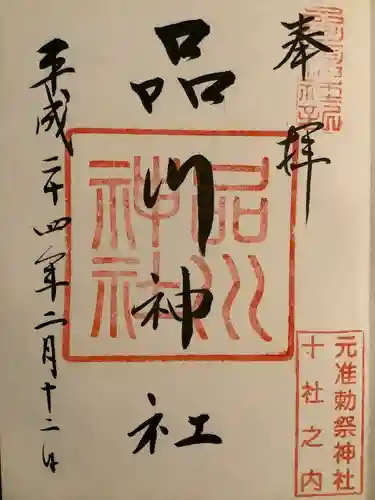 奉拝
元准勅祭神社
十社之内
品川神社
品川神社
平成二十四年二月十二日